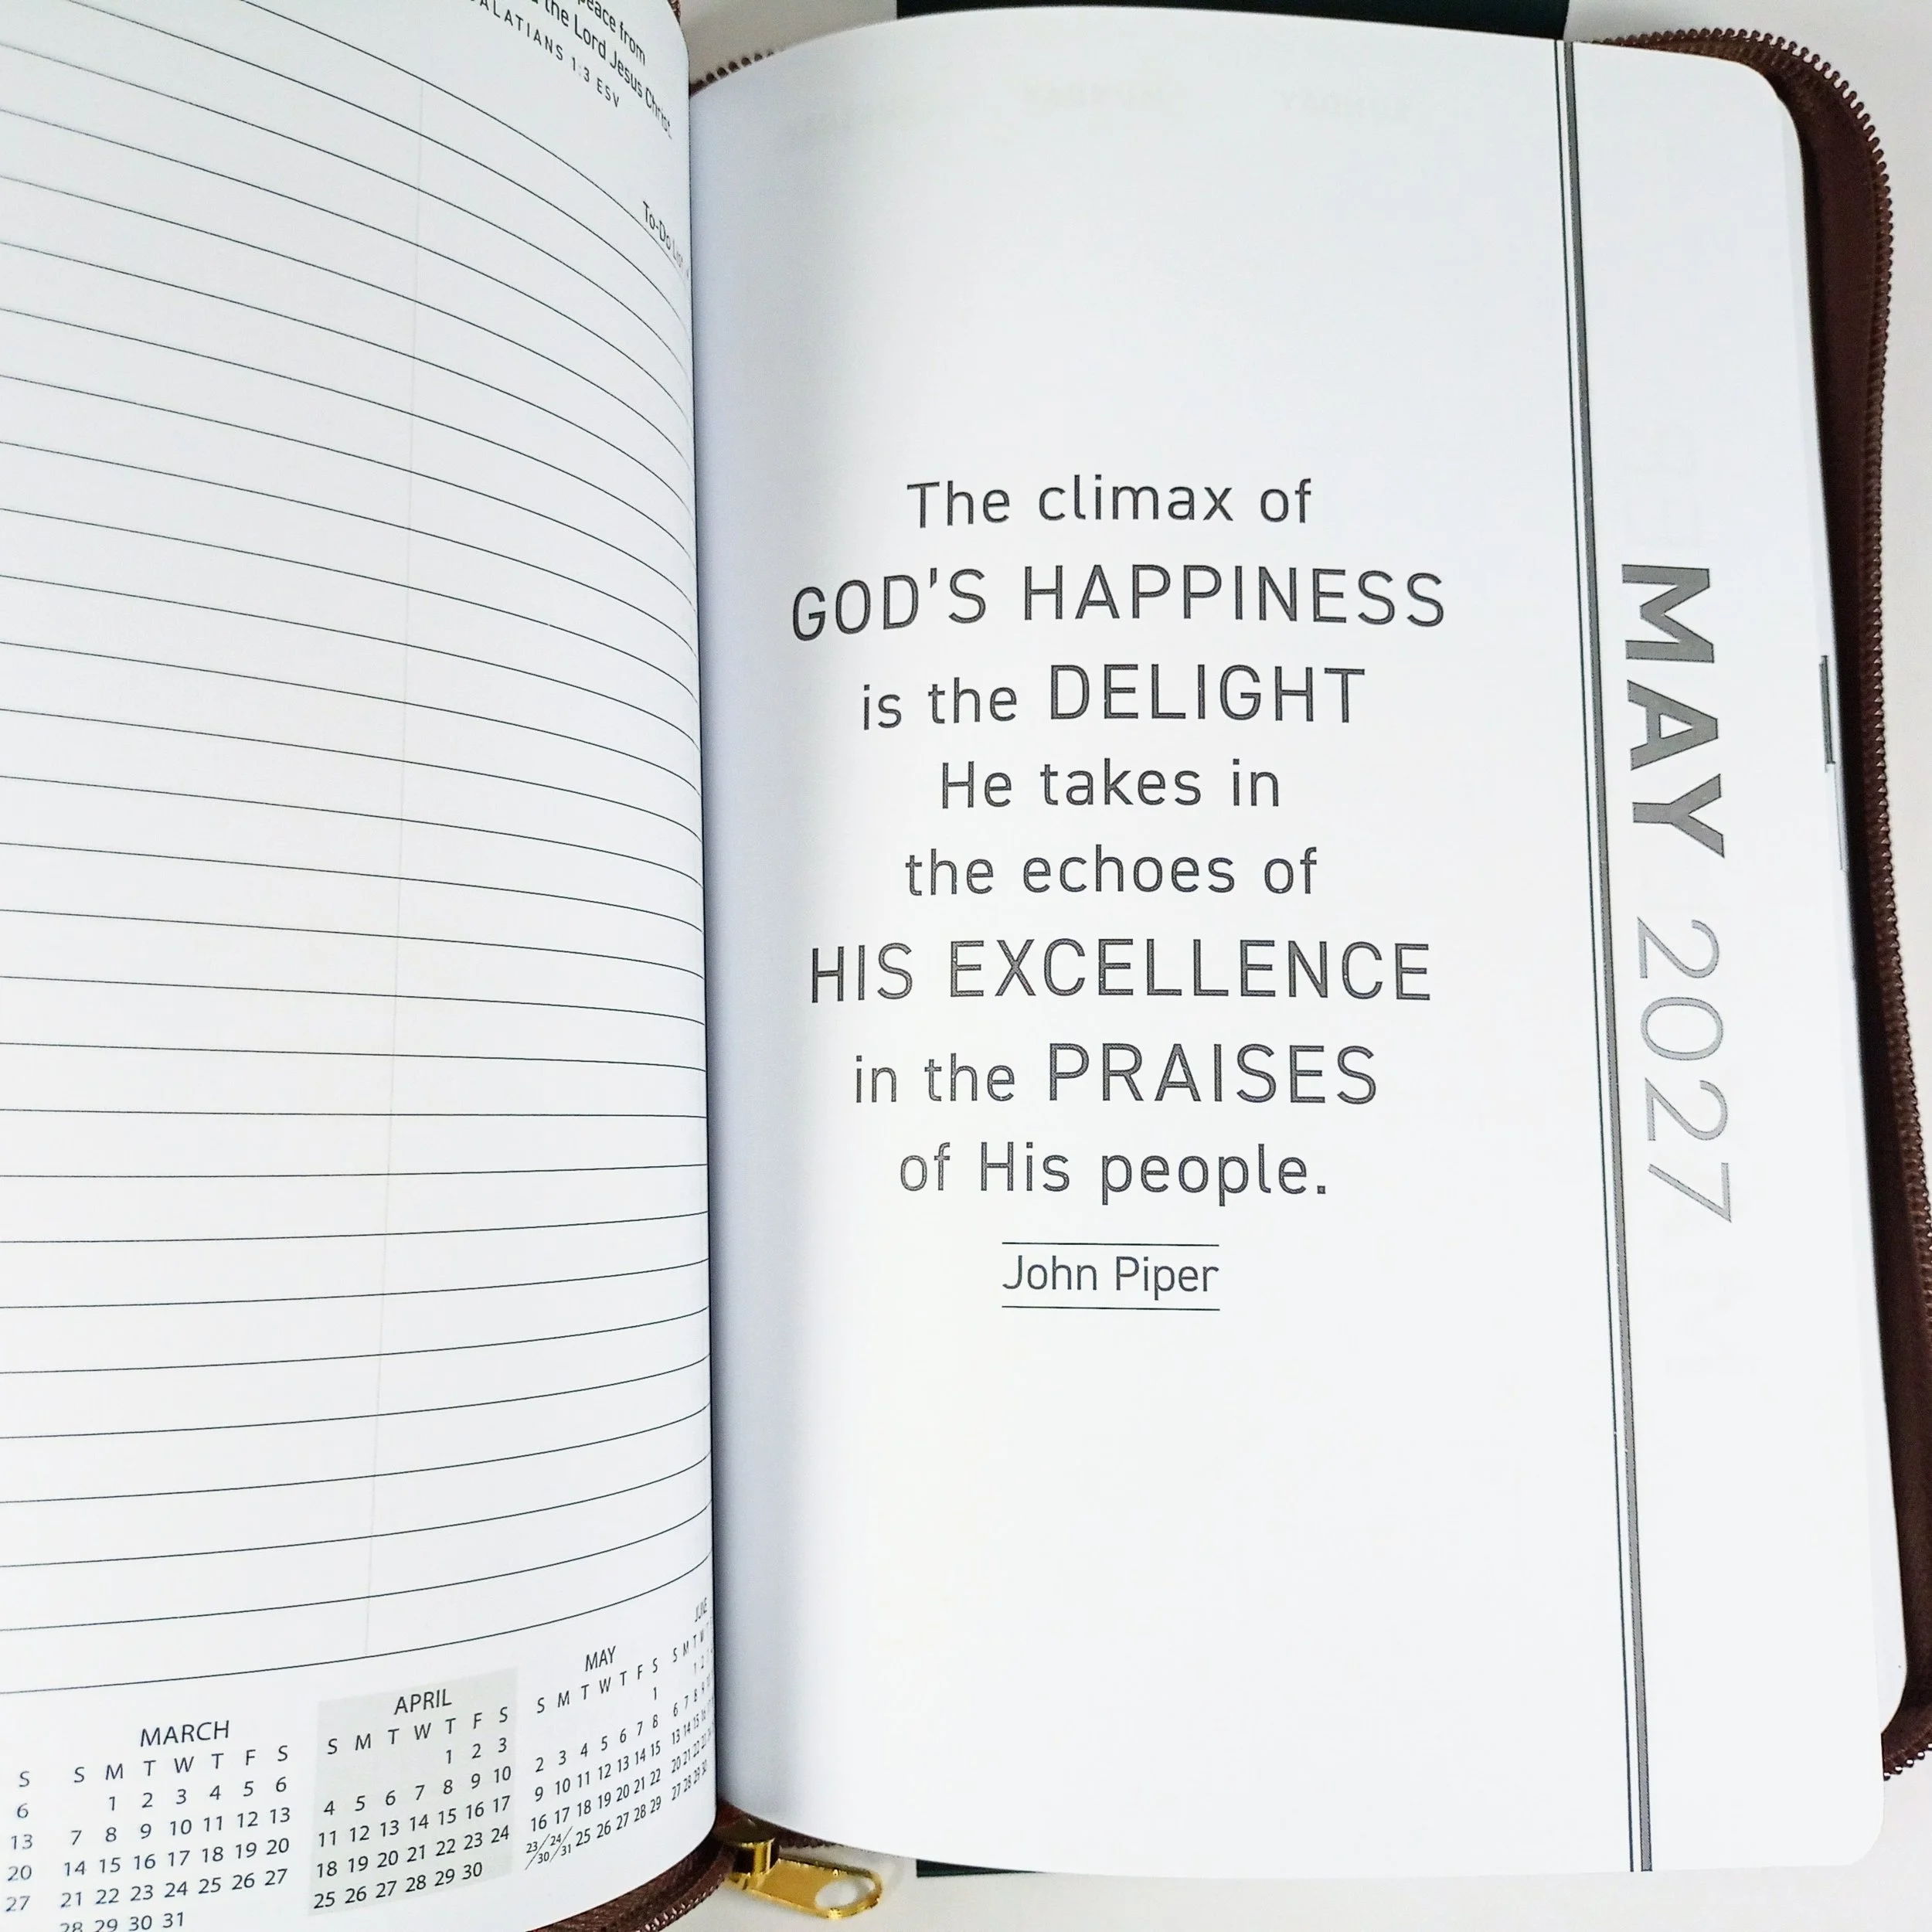 peace from
the Lord Jesus Christ.
GALATIANS 1:3 ESV
To-Do List
S
6
13
20
27
MARCH
S M T W T F S
1 2 3 4 5 6
7 8 9 10 11 12 13
14 15 16 17 18 19 20
21 22 23 24 25 26 27
28 29 30 31
APRIL
S M T W T F S
1 2 3
4 5 6 7 8 9 10
11 12 13 14 15 16 17
18 19 20 21 22 23 24
25 26 27 28 29 30
MAY
S M T W T F S
1
2 3 4 5 6 7 8
9 10 11 12 13 14 15
16 17 18 19 20 21 22
23/30 24/31 25 26 27 28 29
JUNE
S M T W
1 2
6 7 8 9
13 14 15 16
20 21 22 23
27 28 29 30
The climax of
GOD'S HAPPINESS
is the DELIGHT
He takes in
the echoes of
HIS EXCELLENCE
in the PRAISES
of His people.
John Piper
MAY 2027